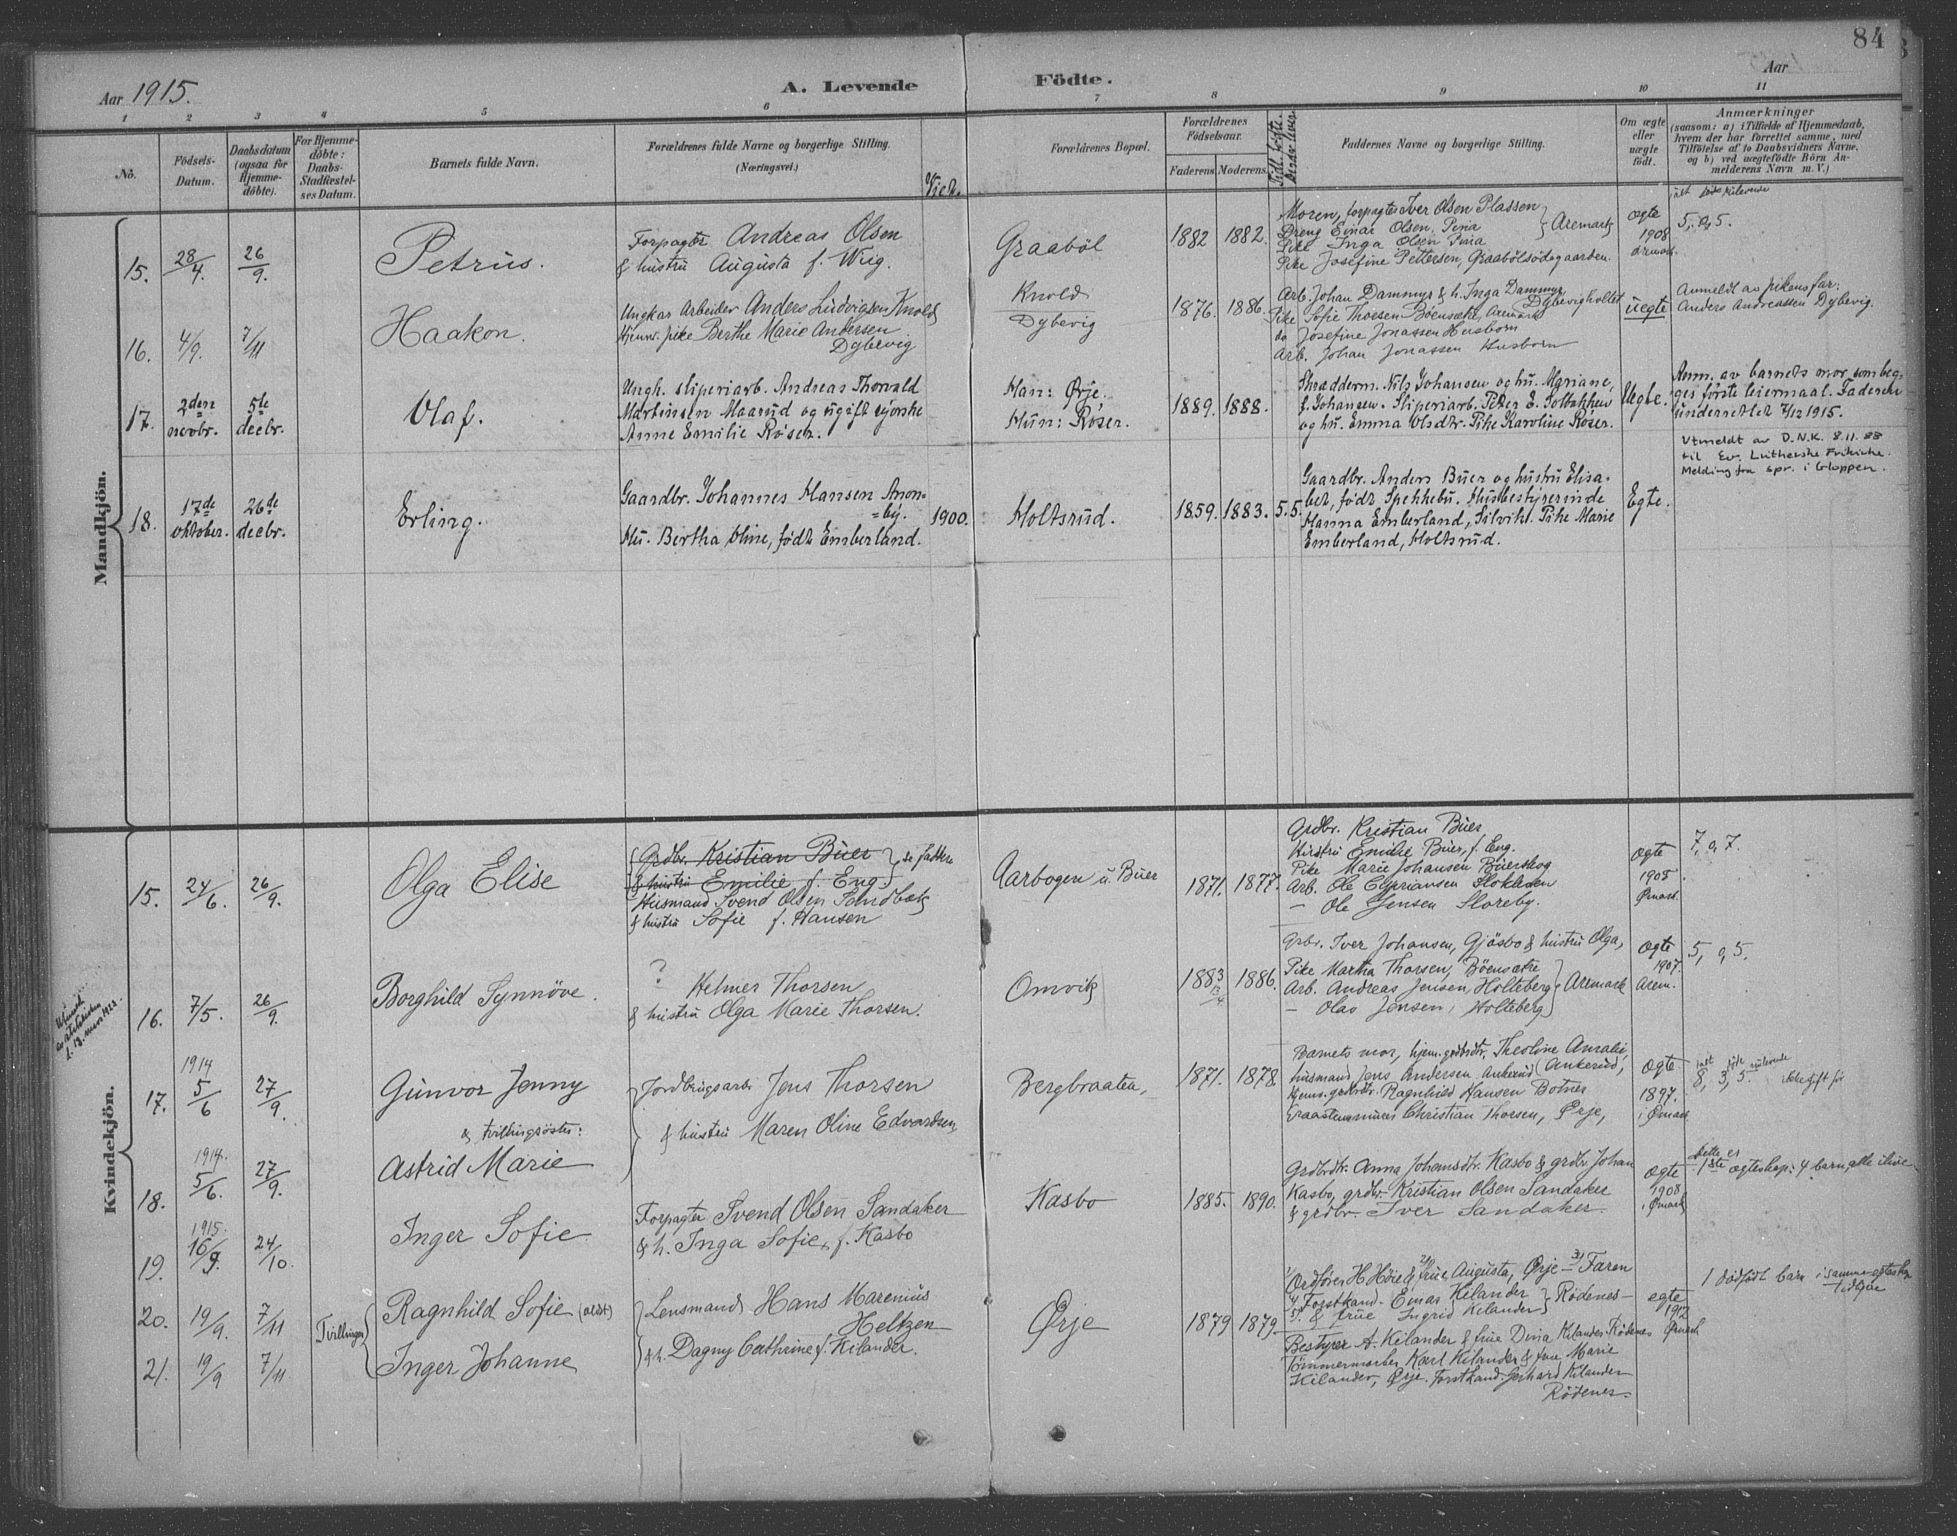 84
Aar 1915. A. Levende Födte. Aar
1 2 3 4 5 6 7 8 9 10 11
No.
Födsels-
Datum.
Daabsdatum
(ogsaa for
Hjemme-
döbte).
For Hjemme-
döbte:
Daabs-
Stadfestel-
ses Datum.
Barnets fulde Navn.
Forældrenes fulde Navne og borgerlige Stilling.
(Næringsvei.)
Viede.
Forældrenes Bopæl.
Forældrenes
Födselsaar.
Faderens. Moderens.
Faddernes Navne og borgerlige Stilling.
Om ægte
eller
uægte
födt.
Anmærkninger
(saasom: a) i Tilfælde af Hjemmedaab,
hvem der har forrettet samme, med
Tilföielse af to Daabsvidners Navne,
og b) ved uægtefödte Börn An-
melderens Navn m. V.)
Mandkjön.
15. 28/4. 26/9. Petrus.
Forpagter Andreas Olsen
& hustru Augusta f. Wiig.
Graaböl 1882 1882.
Moren, forpagter Iver Olsen Plassen
Dreng Einar Olsen,
Pike Inga Olsen
Aremark
Pike Josefine Pettersen, Graabölsödegaarden.
ægte
1908
5, 0, 5.
16. 4/9. 7/11 Haakon.
Ungkar Arbeider Anders Ludvigsen Knold &
Hjemv. pike Berthe Marie Andersen
Dybevig
Knold
Dybevig
1876. 1886.
Arb. Johan Dammyr & h. Inga Dammyr
Dybevigholtet
Pike Sofie Thorsen Böensæthre, Aremark
do Josefine Jonassen Husborn
Arb. Johan Jonassen Husborn
uegte
Anmeldt av pikens far:
Anders Andreassen Dybevig.
17. 2den novbr. 5te decbr. Olaf.
Ungk. sliperiarb. Andreas Thorvald
Martinsen Maarud og ugift syerske
Anne Emilie Röser.
Han: Ørje.
Hun: Röser.
1889. 1888.
Skradderm. Nils Johansen og hu. Mariane,
f. Johansen. Sliperiarb. Peter E. Solbakken
og hu. Emma Olsdtr. Pike Karoline Röser.
Uegte.
Anm. av barnets mor som beg-
ges förste leiermaal. Faderen
underrettet 7/12 1915.
Utmeldt av D.N.K. 8.11.88
til Ev. Lutherske Frikirke.
Melding fra spr. i Gloppen.
18. 17de oktober. 26de decbr. Erling.
Gaardbr. Johannes Hansen Anon-
=by.
Hu. Bertha Oline, födt Emberland.
1900. Holtsrud. 1859. 1883. 5.5.
Gaardbr. Anders Buer og hustru Elisa-
bet, födt Spekkebu. Husbestyrerinde
Hanna Emberland, Silvik. Pike Marie
Emberland, Holtsrud.
Egte.
Kvindekjön.
15. 24/6. 26/9. Olga Elise
Grdbr. Kristian Buer
& hustru Emilie f. Eng
se faddere
Husmand Svend Olsen Sandbæk
& hustru Sofie f. Hansen
Aarbogen u. Buer 1871. 1877.
Grdbr. Kristian Buer,
Hustru Emilie Buer, f. Eng.
Pike Marie Johansen Buerskog
Arb. Ole Cypriansen Slokleven
— Ole Jensen Storeby.
ægte
1905
Ømark.
7, 0, 7.
16. 7/5. 26/9. Borghild Synnöve.
? Helmer Thorsen
& hustru Olga Marie Thorsen.
Omvik 1883 1886.
Grbr. Iver Johansen, Gjösbo & hustru Olga,
Pike Martha Thorsen, Böensætre
Arb. Andreas Jensen, Holteberg
— Olav Jensen, Holteberg
Aremark
ægte
1907.
Arem.
5, 0, 5.
17. 1914 5/6 27/9. Gunvor Jenny
& tvillingsöster:
Jordbrugsarb. Jens Thorsen
& hustru Maren Oline Edvardsen
Bergbraaten, 1871. 1878
Barnets mor, hjem. grdbrdtr. Theoline Amalie,
husmand Jens Andersen Ankerud (Ankerud,
Hjemv. grdbrdtr. Ragnhild Hansen Botner
Graastensmurer Christian Thorsen, Ørje,
ægte
1897.
i Ømark
8, 3, 5.
18. 1914. 5/6. 27/9. Astrid Marie
19. 1915. 16/9. 24/10. Inger Sofie
Forpagter Svend Olsen Sandaker
& h. Inga Sofie, f. Kasbo
Kasbo 1885. 1890.
Grdbrdtr. Anna Johansdtr. Kasbo & grdbr. Johan
Kasbo, grdbr. Kristian Olsen Sandaker
& grdbr. Iver Sandaker.
ægte
1908
i Ømark
dette er
1ste ægteskap: 4 barn alle ilive
20. 19/9. 7/11 Tvillinger Ragnhild Sofie (ældst)
Lensmand Hans Marenius
Heltzen
& h. Dagny Cathrine f. Kilander.
Ørje 1879 1879.
21. 19/9 7/11 Inger Johanne
Ordförer H. Höie & frue Augusta, Ørje — Faren
Forstkand. Einar Kilander
& frue Ingrid Kilander
Rödenes —
Bestyrer A. Kilander & frue Dina Kilander, Rödenes
Tömmermerker Karl Kilander & frue Marie
Kilander, Ørje. Forstkand. Gerhard Kilander
Rödenes.
egte
1912
Ømark
1 dödfödt barn i samme egteskap
tidligere